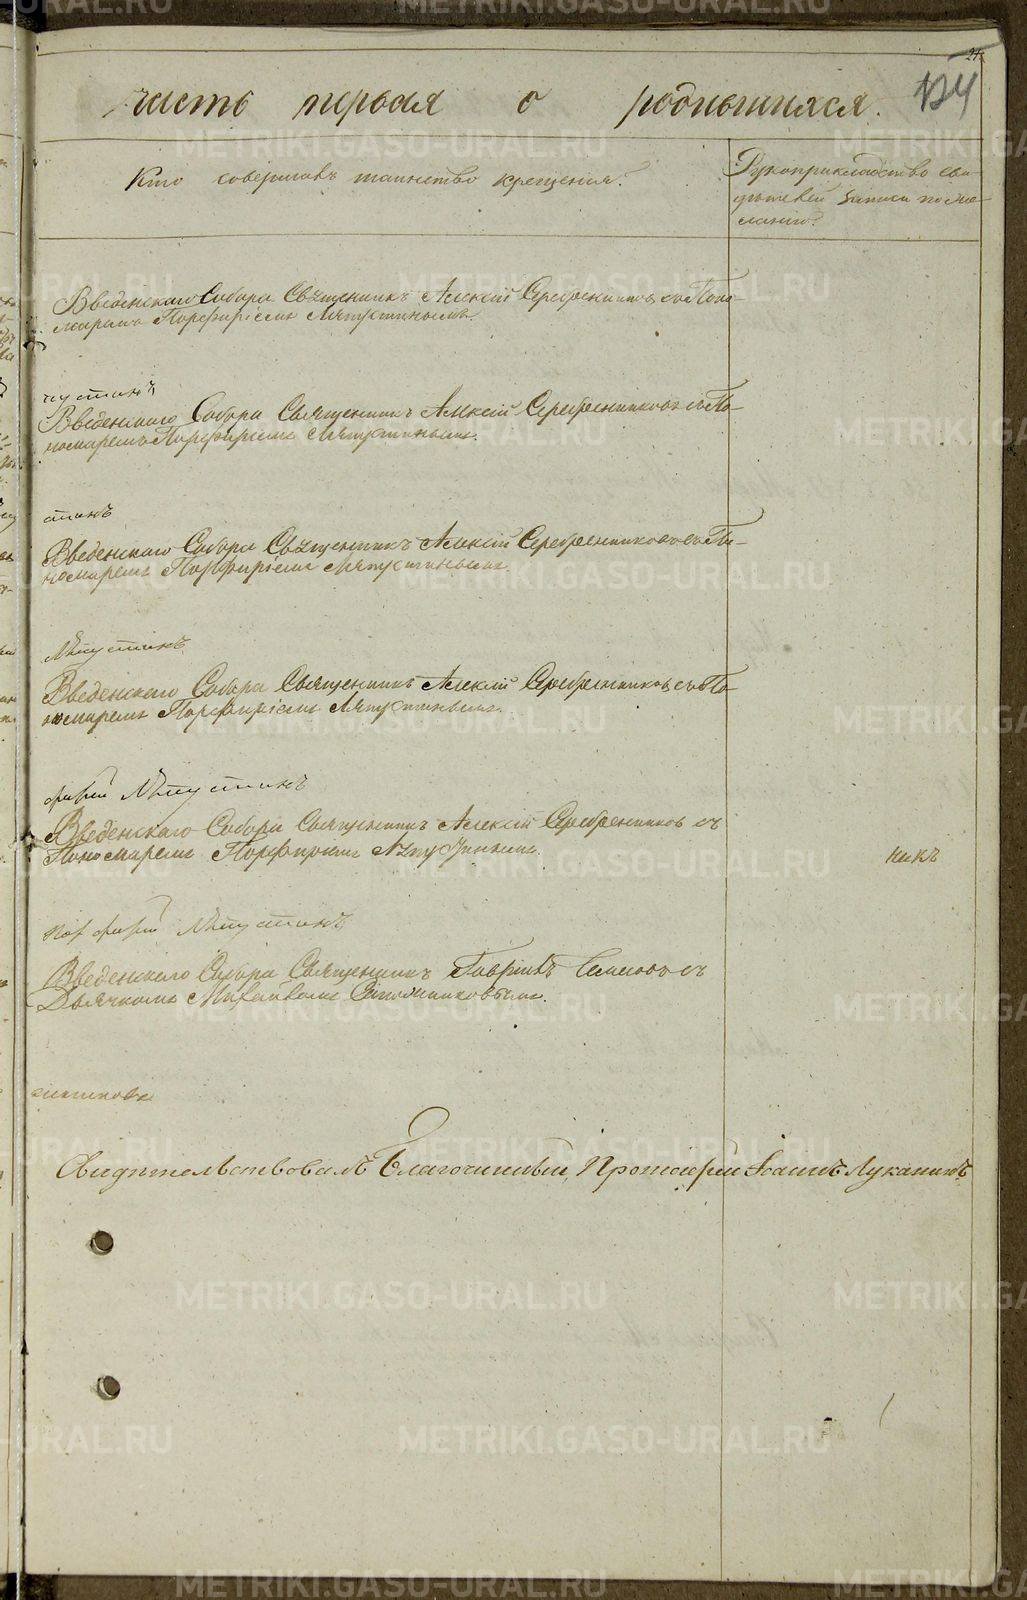 21.
134
часть первая о родившихся.
Кто совершалъ таинство крещенія?
Рукоприкладство сви-
дѣтелей записи по же-
ланію?
Введенскаго Собора Священникъ Алексій Серебренниковъ съ Поно-
маремъ Порфиріемъ Ляпустинымъ.
пустинъ
Введенскаго Собора Священникъ Алексій Серебренниковъ съ По-
номаремъ Порфиріемъ Ляпустинымъ.
стинъ
Введенскаго Собора Священникъ Алексій Серебренниковъ съ По-
номаремъ Порфиріемъ Ляпустинымъ.
Ляпустинъ
Введенскаго Собора Священникъ Алексій Серебренниковъ съ По-
номаремъ Порфиріемъ Ляпустинымъ.
фирій Ляпустинъ
Введенскаго Собора Священникъ Алексій Серебренниковъ съ
Пономаремъ Порфиріемъ Ляпустинымъ.
никъ
Порфирій Ляпустинъ
Введенскаго Собора Священникъ Гавріилъ съ
Дьячкомъ Михаиломъ Сапожниковымъ.
Свидѣтельствовалъ Благочинный, Протоіерей Іоаннъ Луканинъ
METRIKI.GASO-URAL.RU